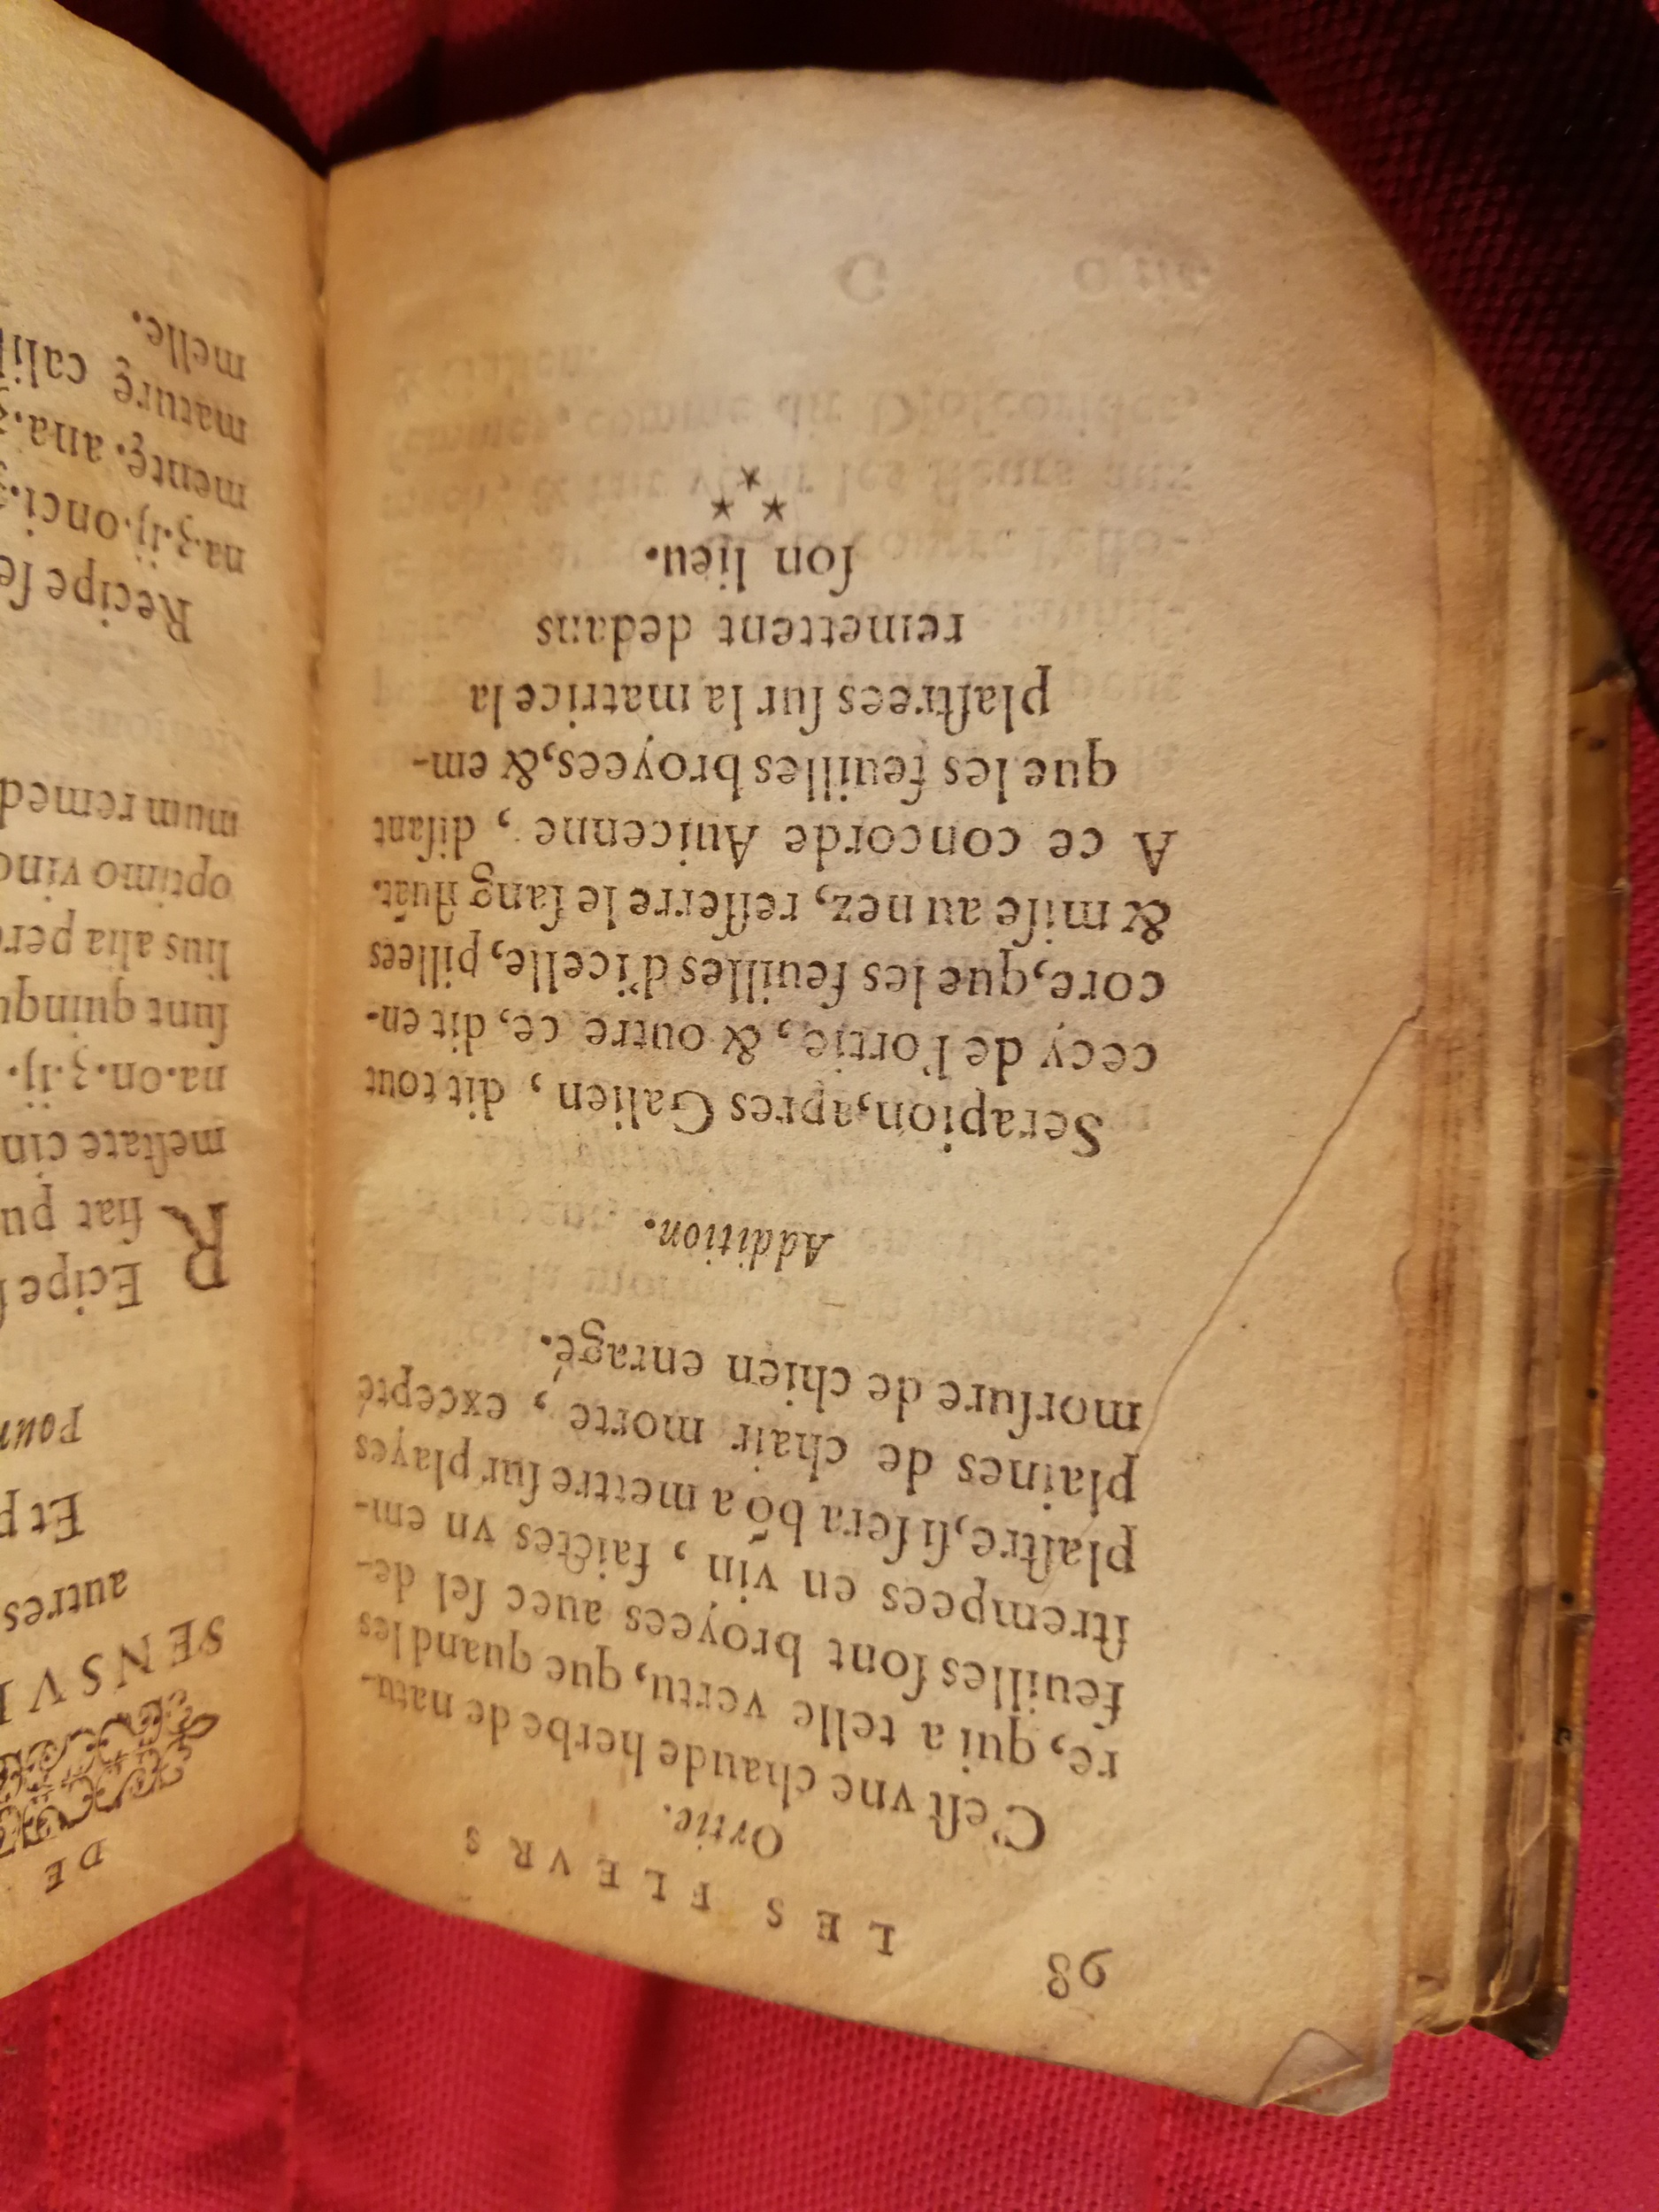 98
LES FLEVRS
Ortie.
C'eſt vne chaude herbe de natu-
re, qui a telle vertu, que quand les
feuilles ſont broyees auec ſel de-
ſtrempees en vin, faictes vn em-
plaſtre, ſi ſera bõ a mettre ſur playes
plaines de chair morte, excepté
morſure de chien enragé.
Addition.
Serapion, apres Galien, dit tout
cecy de l'ortie, & outre ce, dit en-
core, que les feuilles d'icelle, pillees
& miſe au nez, reſſerre le ſang fluāt.
A ce concorde Auicenne, diſant
que les feuilles broyees, & em-
plaſtrees ſur la matrice la
remettent dedans
ſon lieu.
* *
*
DE
SENSV
autres
Et p
Pour
REcipe
fiat pu
meſtate cin
na.on.ʒ.ij.
ſunt quinqu
lius alia per
optimo vino
mum remed
Recipe ſe
na.ʒ.ij.onci.
mentę. ana.
maturę cali
melle.